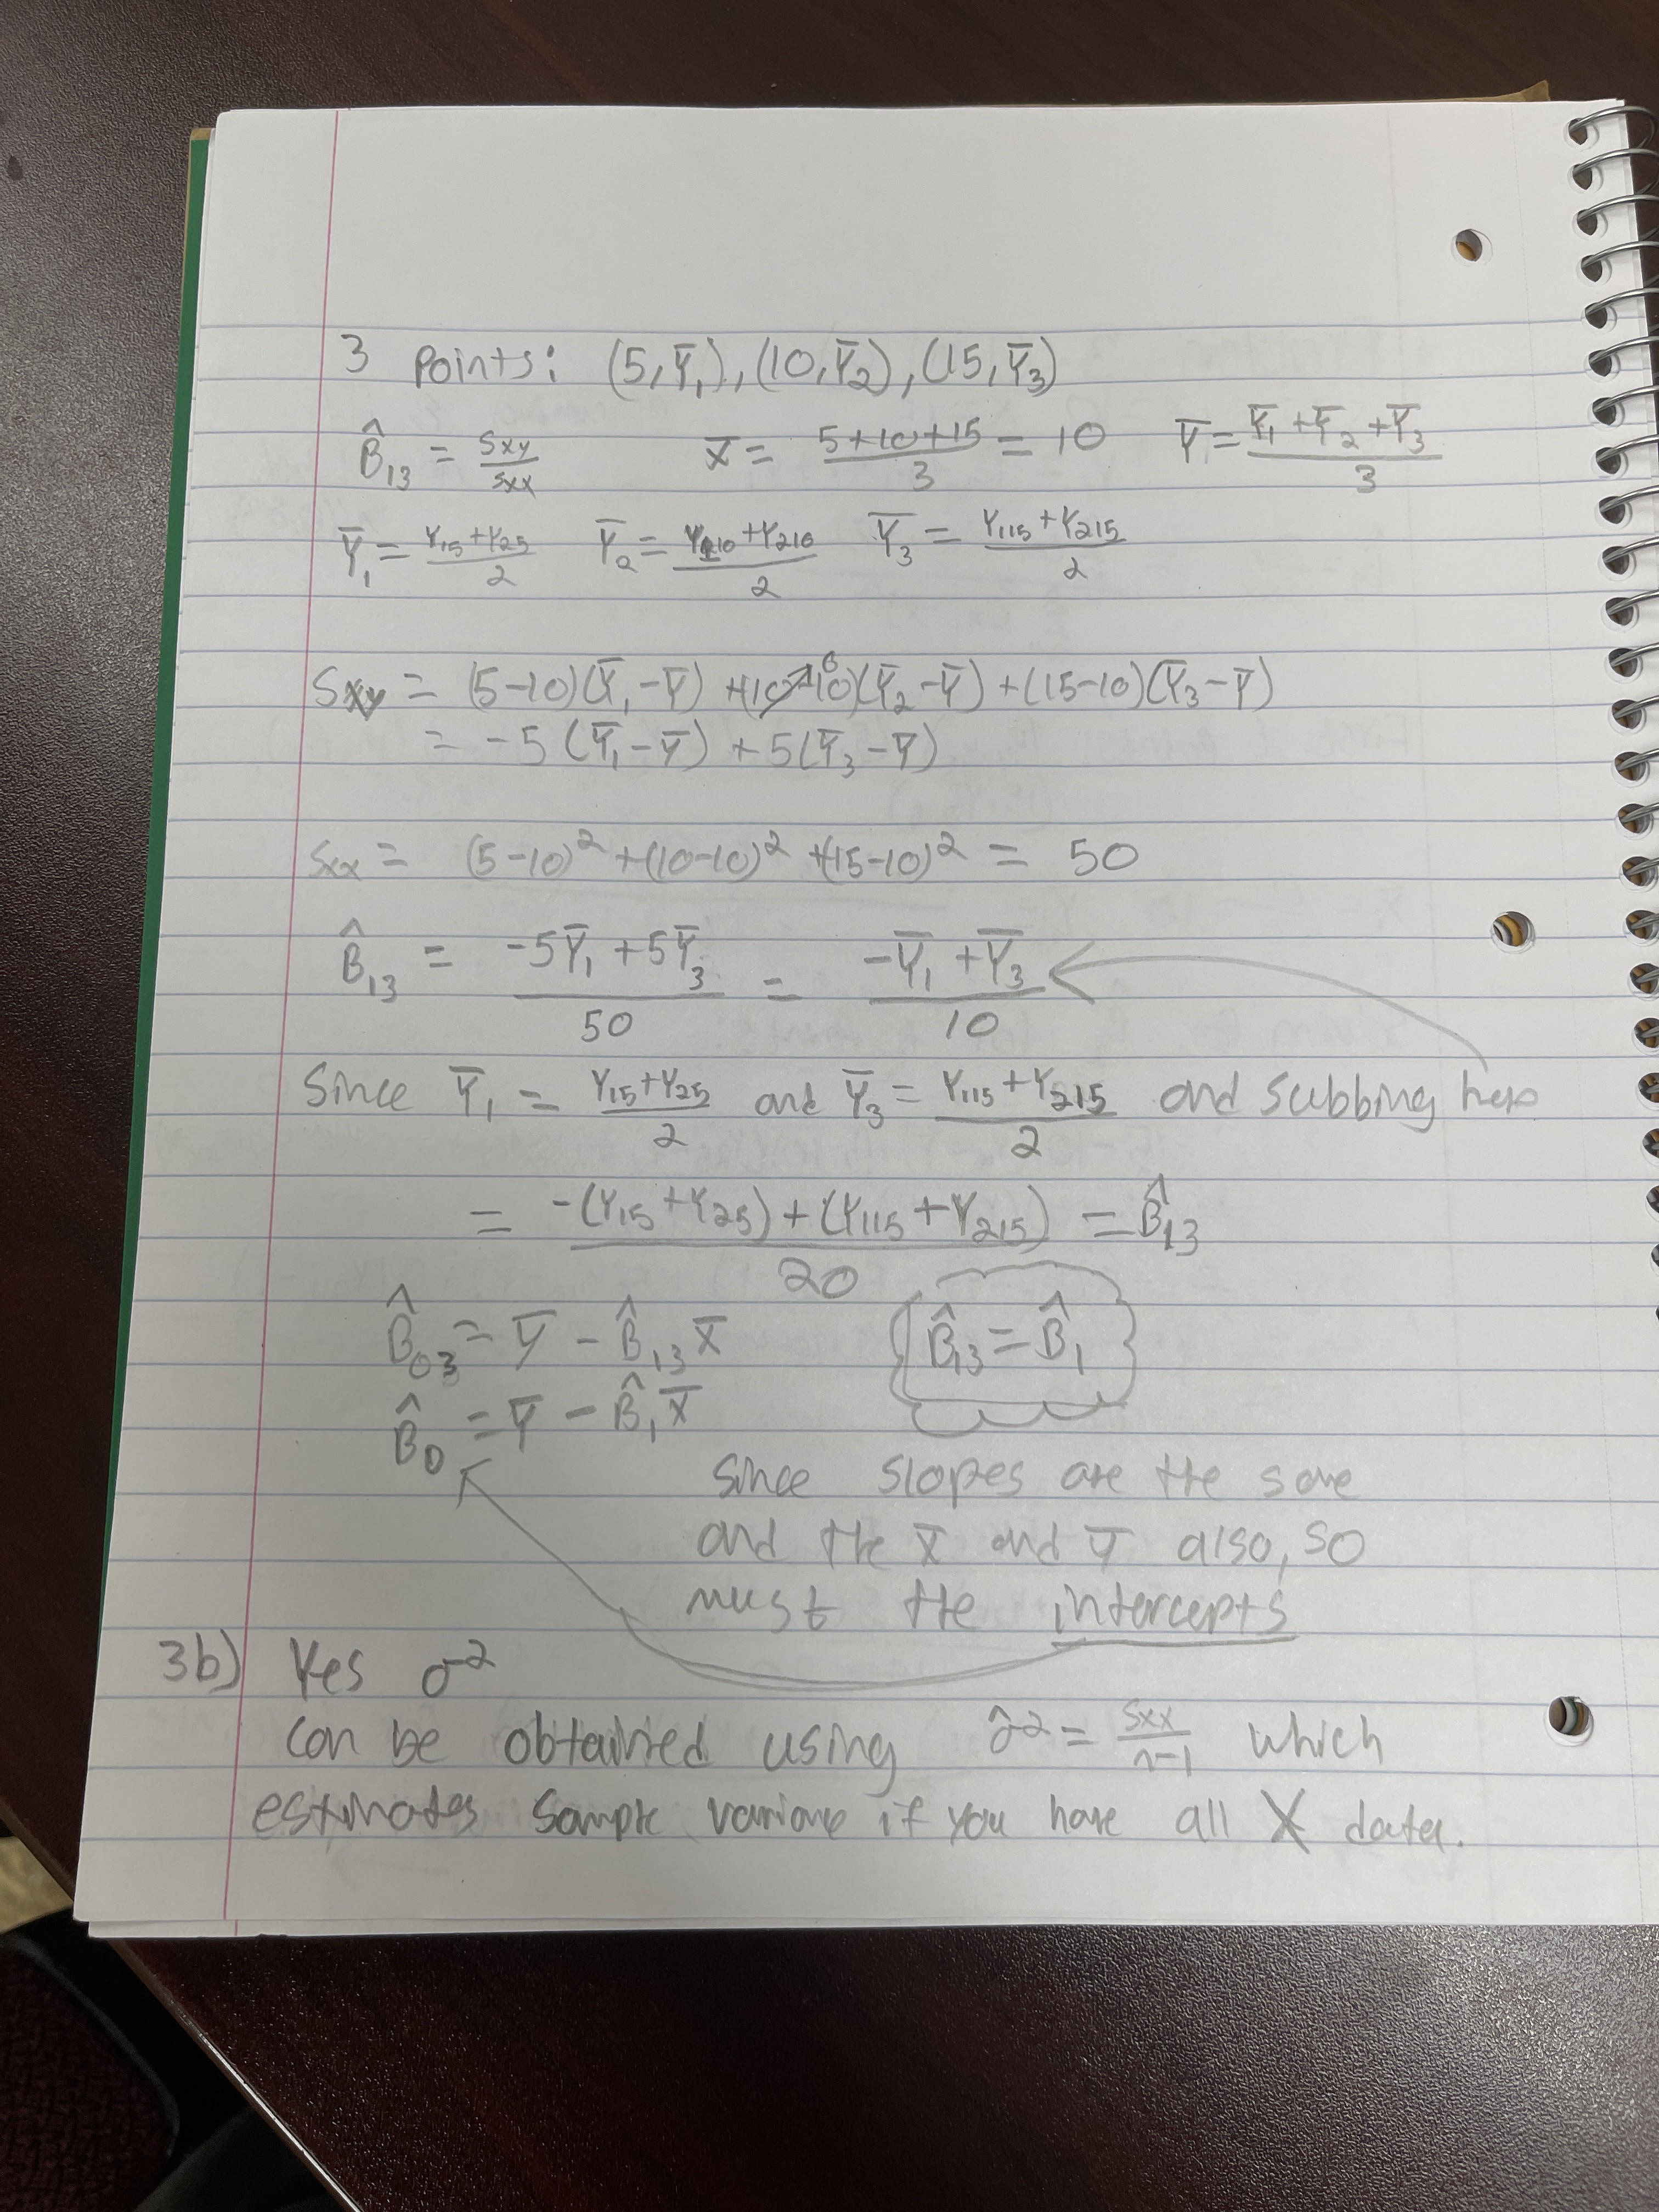 3 Points: (5,Ȳ₁),(10,Ȳ₂),(15,Ȳ₃)
B̂₁₃ = Sxy/Sxx   x̄ = (5+10+15)/3 = 10   Ȳ = (Ȳ₁+Ȳ₂+Ȳ₃)/3
Ȳ₁ = (Y₁₅+Y₂₅)/2   Ȳ₂ = (Y₁₁₀+Y₂₁₀)/2   Ȳ₃ = (Y₁₁₅+Y₂₁₅)/2
Sxy = (5-10)(Ȳ₁-Ȳ) +(10-10)⁰(Ȳ₂-Ȳ) +(15-10)(Ȳ₃-Ȳ)
= -5(Ȳ₁-Ȳ) +5(Ȳ₃-Ȳ)
Sxx = (5-10)² +(10-10)² +(15-10)² = 50
B̂₁₃ = (-5Ȳ₁+5Ȳ₃)/50 = (-Ȳ₁+Ȳ₃)/10
Since Ȳ₁ = (Y₁₅+Y₂₅)/2 and Ȳ₃ = (Y₁₁₅+Y₂₁₅)/2 and subbing here
= (-(Y₁₅+Y₂₅)+(Y₁₁₅+Y₂₁₅))/20 = B̂₁₃
B̂₀₃ = Ȳ - B̂₁₃x̄   B̂₁₃ = B̂₁
B̂₀ = Ȳ - B̂₁x̄
Since slopes are the same
and the x̄ and ȳ also, so
must the intercepts
3b) Yes σ²
can be obtained using σ̂² = Sxx/(n-1) which
estimates sample variance if you have all X data.